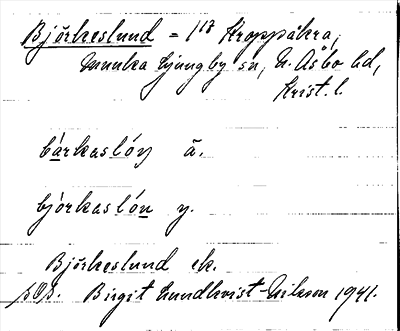 Björkeslund = 1¹⁸ Kroppåkra,
Munka Ljungby sn, N. Åsbo hd,
Krist. l.
bárkaslóŋ ä.
bjòrkaslón y.
Björkeslund ek.
Birgit Lundkvist-Nilsson 1941.